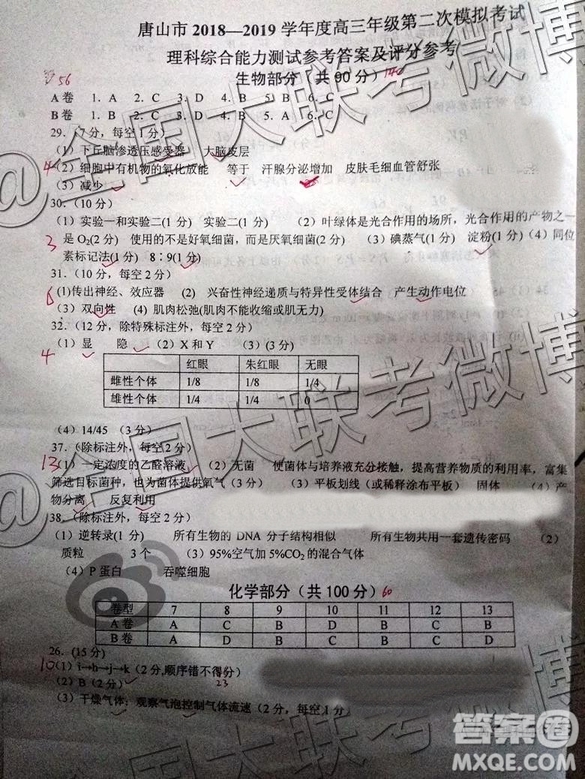 唐山市 2018—2019 学年度高三年级第二次模拟考试
理科综合能力测试参考答案及评分参考
生物部分（共 90 分） 140
56
A 卷 1. A 2. C 3. D 4. B 5. B 6. C
B 卷 1. C 2. D 3. A 4. B 5. A 6. C
29.（7 分，每空 1 分）
（1）下丘脑渗透压感受器 大脑皮层
4（2）细胞中有机物的氧化放能 等于 汗腺分泌增加 皮肤毛细血管舒张
（3）减少
30.（10 分）
（1）实验一和实验二(1 分) （2）叶绿体是光合作用的场所，光合作用的产物之一
3 是 O₂(2 分) 使用的不是好氧细菌，而是厌氧细菌(2 分) （3）碘蒸气(1 分) 淀粉(1 分)（4）同位
素标记法(1 分) 8∶9(1 分)
31.（10 分，每空 2 分）
(1)传出神经、效应器 (2) 兴奋性神经递质与特异性受体结合 产生动作电位
（3）双向性 （4）肌肉松弛(肌肉不能收缩或肌无力)
32.（12 分，除特殊标注外，每空 2 分）
（1）显 隐 （2）X 和 Y （3）(3 分)
4
红眼 朱红眼 无眼
雌性个体 1/8 1/8 1/4
雄性个体 1/4 1/4 0
（4）14/45 （3 分）
37.（除标注外，每空 2 分）
13（1）一定浓度的乙醛溶液 （2）无菌 使菌体与培养液充分接触，提高营养物质的利用率，富集
筛选目标菌种，也为菌体提供氧气（3 分）（3）平板划线（或稀释涂布平板） 固体 （4）产
物分离 反复利用
38.（除标注外，每空 2 分）
（1）逆转录(1 分) 所有生物的 DNA 分子结构相似 所有生物共用一套遗传密码 （2）
质粒 3 个 （3）95%空气加 5%CO₂的混合气体
（4）P 蛋白 吞噬细胞
化学部分（共 100 分） 60
卷型 7 8 9 10 11 12 13
A 卷 A C D D C B B
B 卷 D B C A B C D
26.（15 分）
10（1）i→h→j→k（2 分,顺序错不得分）
（2）B（2 分） 23
（3）干燥气体；观察气泡控制气体流速（2 分，每空 1 分）
@全国大联考微博
@全国大联考微博
答案卷
MXQE.COM